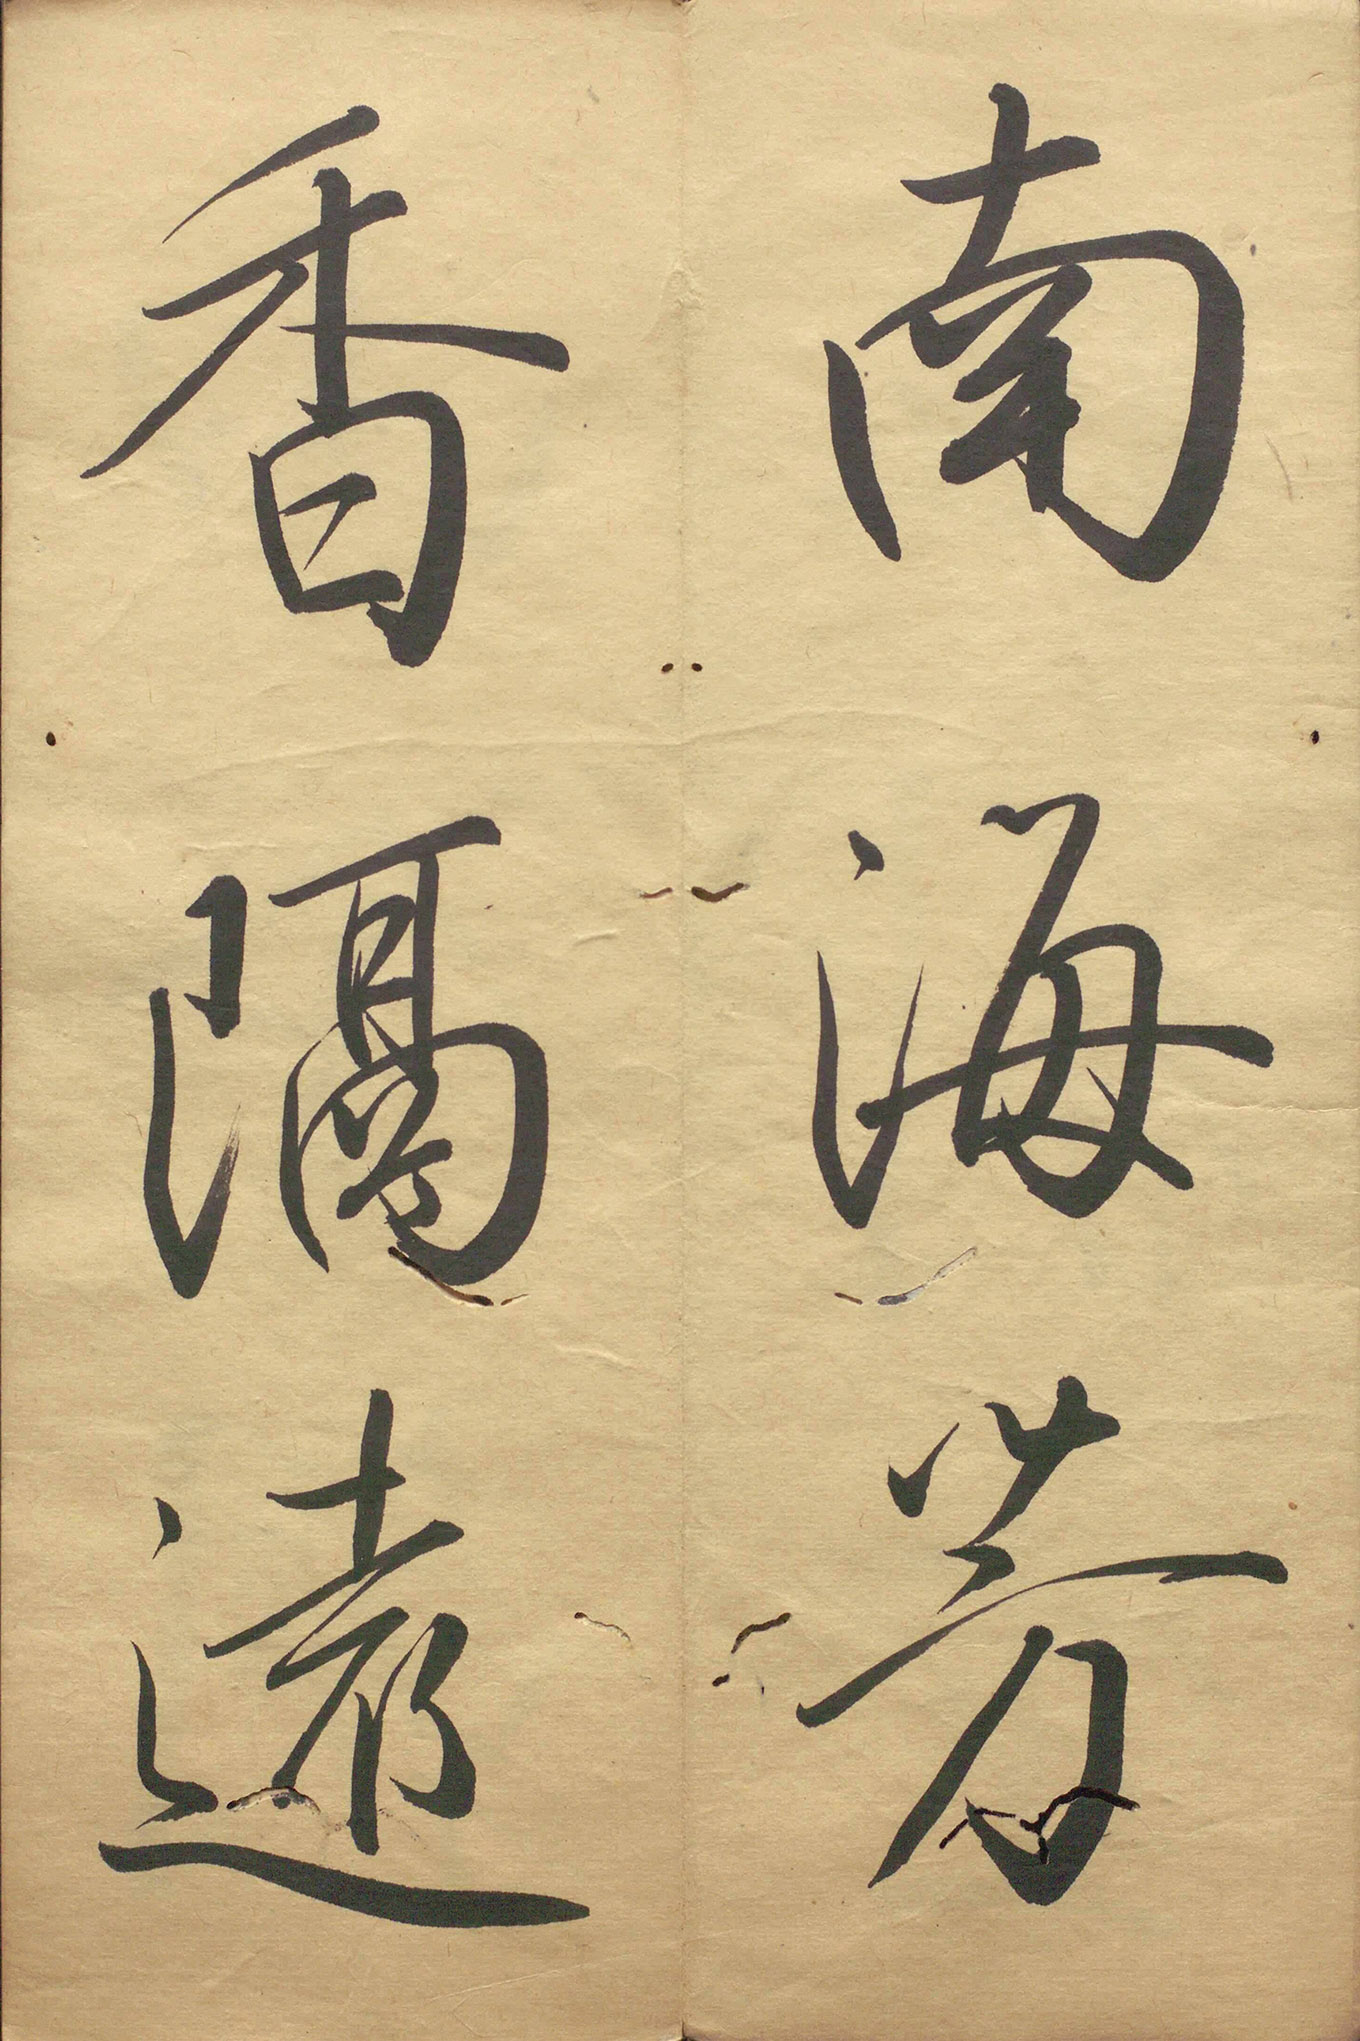 南海芳
香隔遠